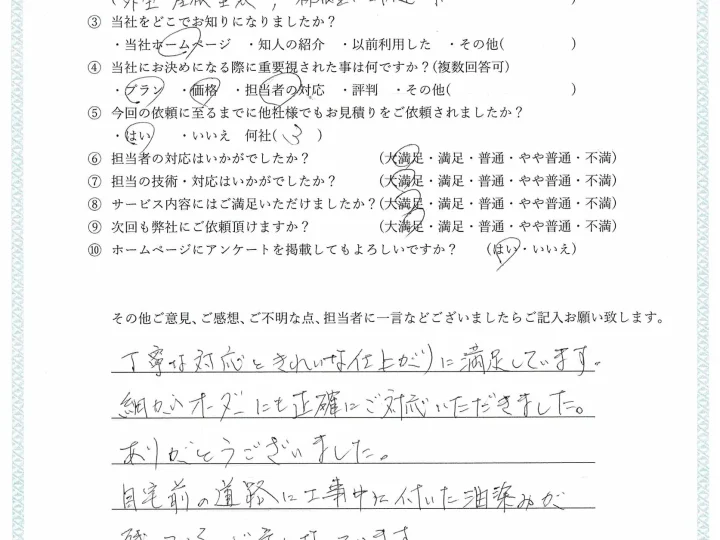 ③ 当社をどこでお知りになりましたか？
・当社ホームページ ・知人の紹介 ・以前利用した ・その他( )
④ 当社にお決めになる際に重要視された事は何ですか？(複数回答可)
・プラン ・価格 ・担当者の対応 ・評判 ・その他( )
⑤ 今回の依頼に至るまでに他社様でもお見積りをご依頼されましたか？
・はい ・いいえ 何社( 3 )
⑥ 担当者の対応はいかがでしたか？ (大満足・満足・普通・やや普通・不満)
⑦ 担当の技術・対応はいかがでしたか？ (大満足・満足・普通・やや普通・不満)
⑧ サービス内容にはご満足いただけましたか？(大満足・満足・普通・やや普通・不満)
⑨ 次回も弊社にご依頼頂けますか？ (大満足・満足・普通・やや普通・不満)
⑩ ホームページにアンケートを掲載してもよろしいですか？ (はい・いいえ)
その他ご意見、ご感想、ご不明な点、担当者に一言などございましたらご記入お願い致します。
丁寧な対応ときれいな仕上がりに満足しています。
細かいオーダーにも正確にご対応いただきました。
ありがとうございました。
自宅前の道路に工事中に付いた油染みが